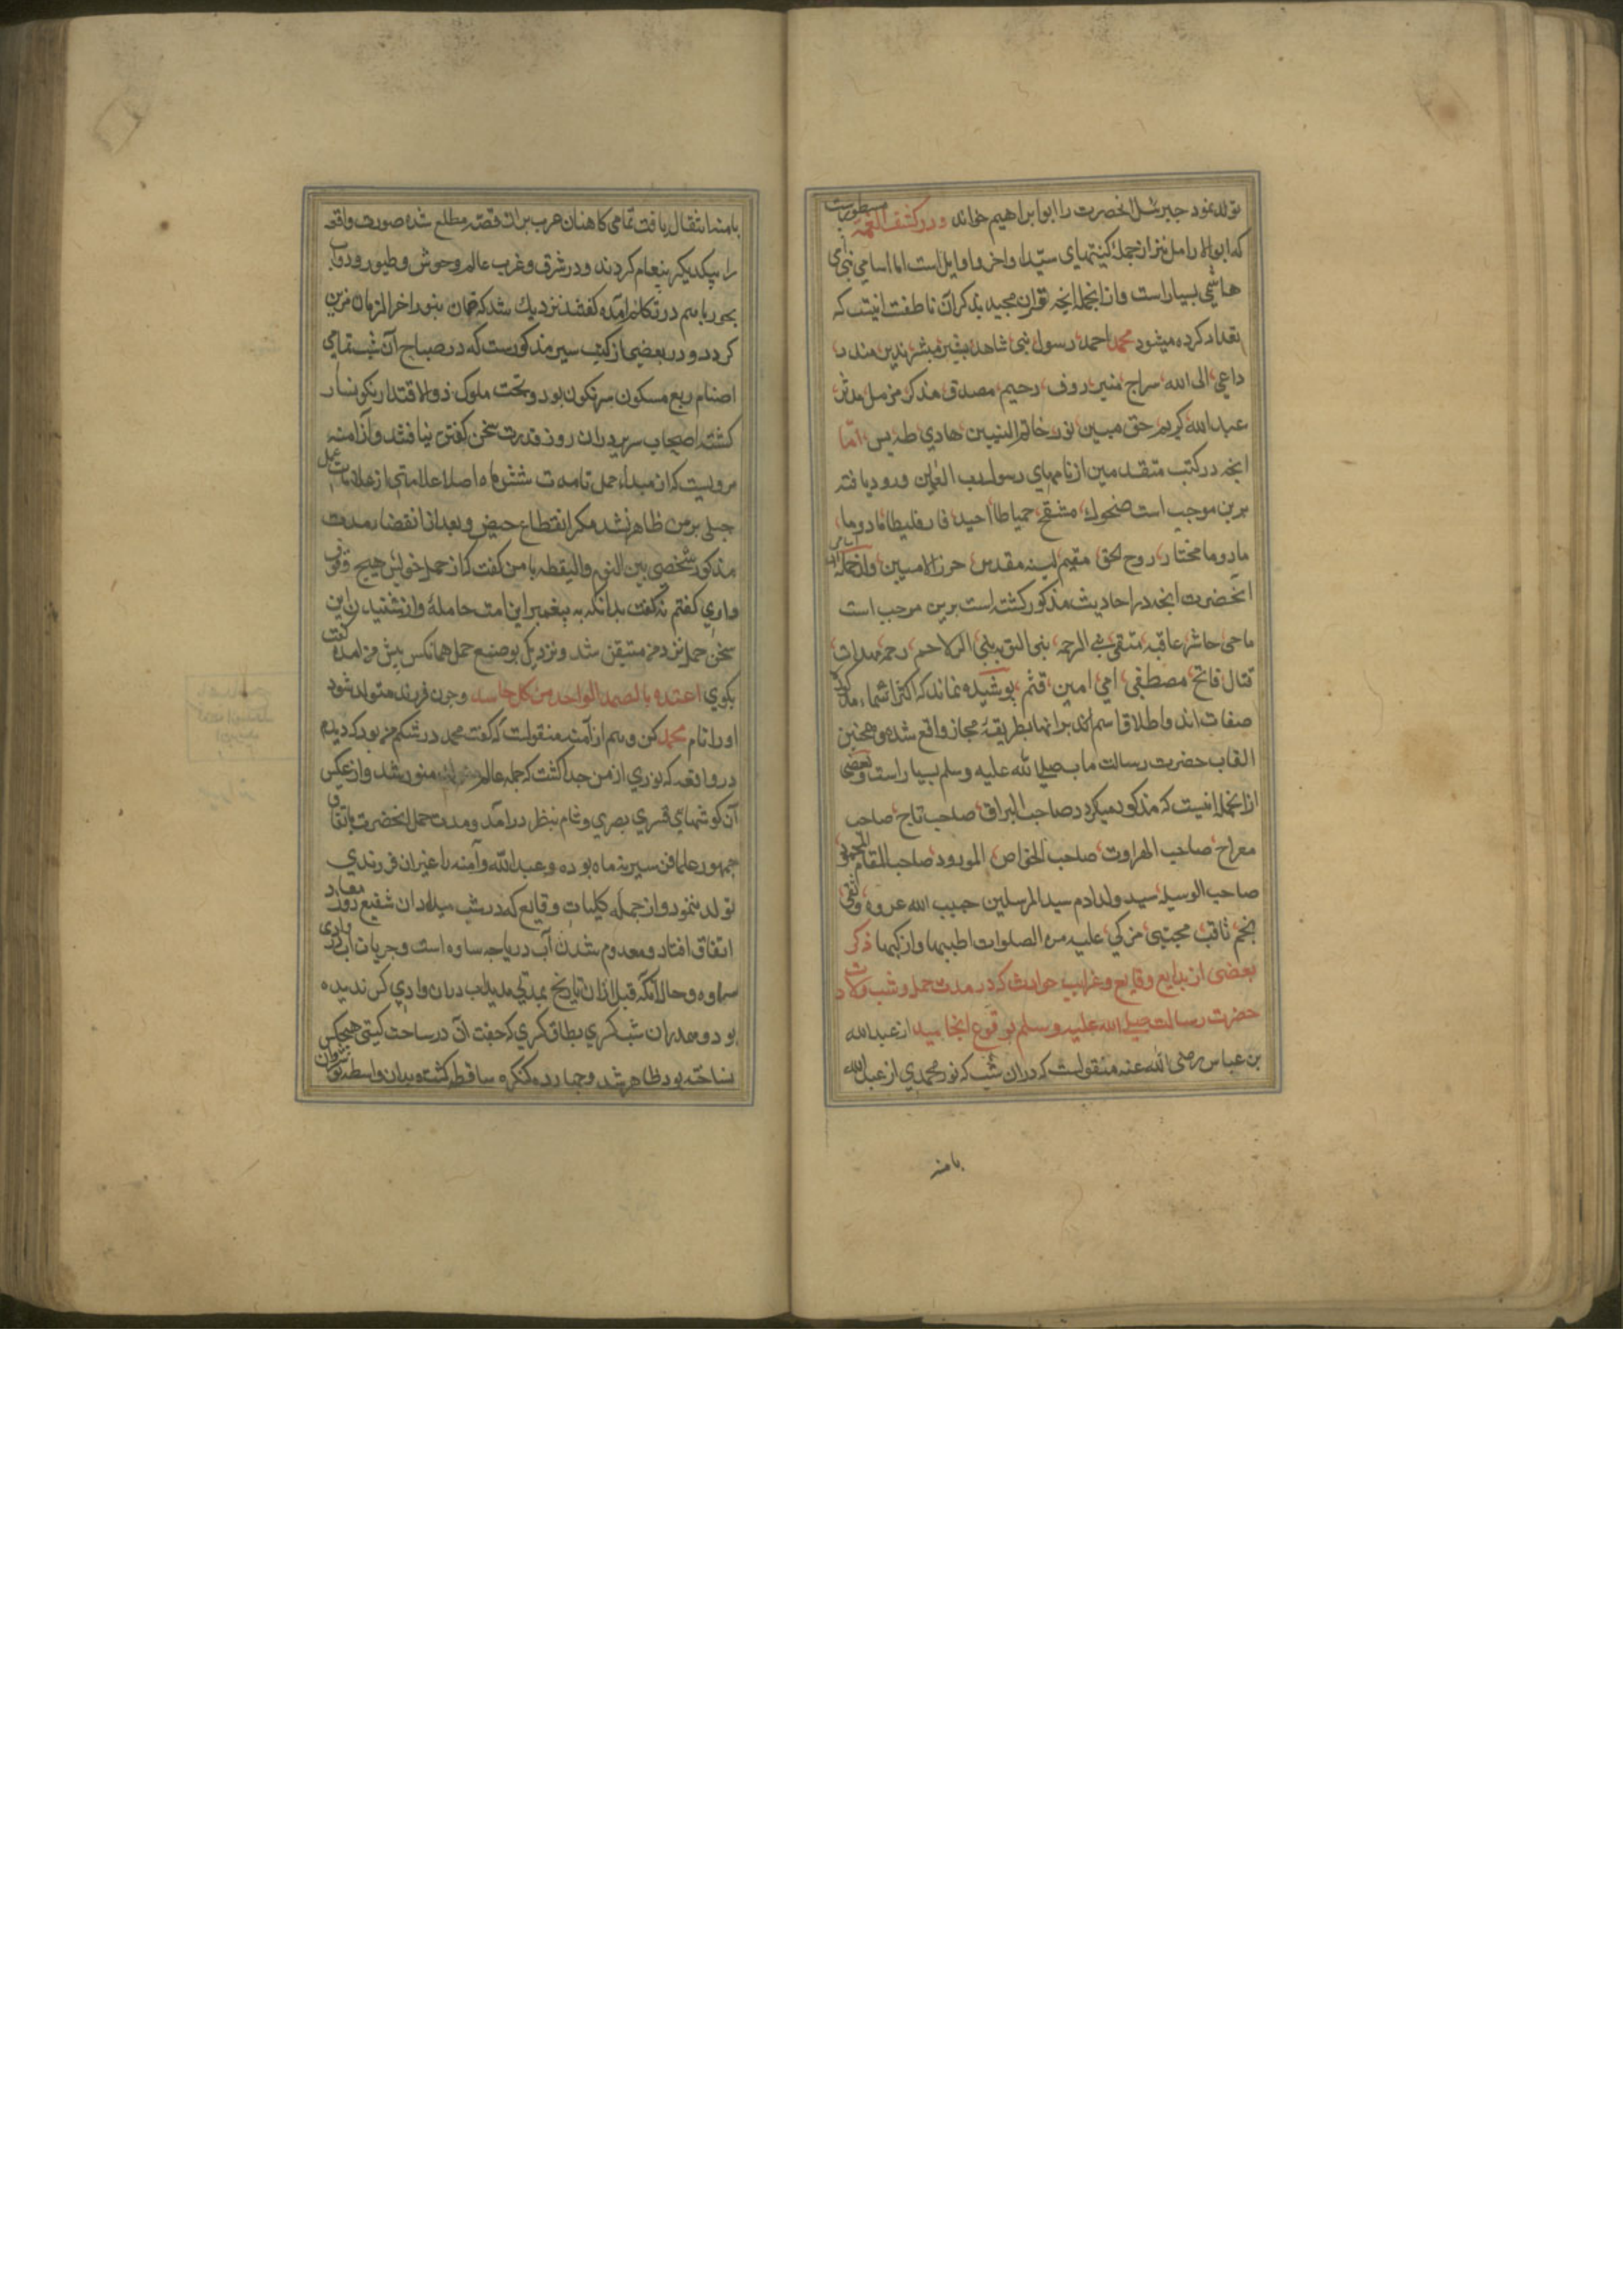 تولد نمود جبرئیل انحضرت را ابو ابراهیم خواند و در کشف الغمه مسطورست
که ابو الارامل نیز از جمله کنیتهای سید اواخر و اوایل است اما اسامی نبی
هاشمی بسیار است و از انجمله انچه قران مجید بذکر آن ناطقست اینست که
تعداد کرده میشود محمد احمد رسول نبی شاهد مبشر نذیر
داعی الی الله سراج منیر روف رحیم مصدق مذکر مزمل مدثر
عبد الله کریم حق مبین نور خاتم النبیین هادی طه یس اما
انچه در کتب متقدمین از نامهای رسول رب العالمین ورود یافته
برین موجب است ضحوک مشقح حمیاطا احید فارقلیطا ماد وما
مادوما مختار روح الحق مقیم السنه مقدس حرز الامیین و از جمله اسامی
آنحضرت انچه در احادیث مذکور کشته است برین موجب است
ماحی حاشر عاقب مقفی نبی الرحمه نبی التوبه نبی الملاحم
قتال فاتح مصطفی امی امین قثم پوشیده نماند که اکثر اسماء
صفات اند و اطلاق اسم بر انها بطریقه مجاز واقع شده و همچنین
القاب حضرت رسالت ماب صلی الله علیه وسلم بسیار است و بعضی
از انجمله اینست که مذکور میکردد صاحب البراق صاحب تاج صاحب
معراج صاحب الهراوت صاحب الحوض المورود صاحب المقام المحمود
صاحب الوسیله سید ولد ادم سید المرسلین حبیب الله عروه وثقی
نجم ثاقب مجتبی مزکی علیه من الصلوات اطیبها و ازکیها ذکر
بعضی از بدایع وقایع و غرایب حوادث که در مدت حمل و شب ولادت
حضرت رسالت صلی الله علیه وسلم بوقوع انجامید از عبد الله
بن عباس رضی الله عنه منقولست که دران شب که نور محمدی از عبد الله
بامنه
بامنه انتقال یافت تمامی کاهنان عرب بران قصه مطلع شده صورت واقعه
را بیکدیکر پیغام کردند و در شرق و غرب عالم وحوش و طیور و دواب
بحور باهم در تکلم آمده کفتند نزدیک شد که جهان بنور اخر الزمان مزین
کردد و در بعضی از کتب سیر مذکورست که در صباح آن شب تمامی
اصنام ربع مسکون سرنکون بود و تخت ملوک ذو الاقتدار نکونسار
کشته اصحاب سریر دران روز قدرت سخن کفتن نیافتند و از آمنه
مرویست که از مبداء حمل تا مدت شش ماه اصلا علامتی از علامات
حبلی بر من ظاهر نشد مکر انقطاع حیض و بعد از انقضاء مدت
مذکور شخصی بین النوم والیقظه با من کفت که از حمل خویش هیچ وقوف
داری کفتم نه کفت بدانکه به پیغمبر این امت حامله و از شنیدن این
سخن حمل نزد من متیقن شد و نزدیک بوضع حمل همانکس پیش من آمده کفت
بکوی اعیذه بالصمد الواحد من کل حاسد و چون فرزند متولد شود
اورا نام محمد کن و هم از آمنه منقولست که کفت محمد در شکم من بود که دیدم
در واقعه که نوری از من جدا کشت که جمله عالم منور شد و از عکس
آن کوشکهای قصری بصری و شام بنظر درآمد و مدت حمل آنحضرت باتفاق
جمهور علما فن سیر نه ماه بوده و عبد الله و آمنه را غیر ان فرزندی
تولد ننمود و از جمله کلیات وقایع که در شب میلاد ان شفیع روز معاد
اتفاق افتاد و معدوم شدن آب دریاچه ساوه است و جریان آب در وادی
سماوه و حالانکه قبل ازان تاریخ بمدتی مدید آب دران وادی کس ندیده
بود و هم دران شب کسری بطاق کسری که جفت آن در ساحت کیتی هیچکس
نساخته بود ظاهر شد و چهارده کنکره ساقط کشته بدان واسطه نوشروان